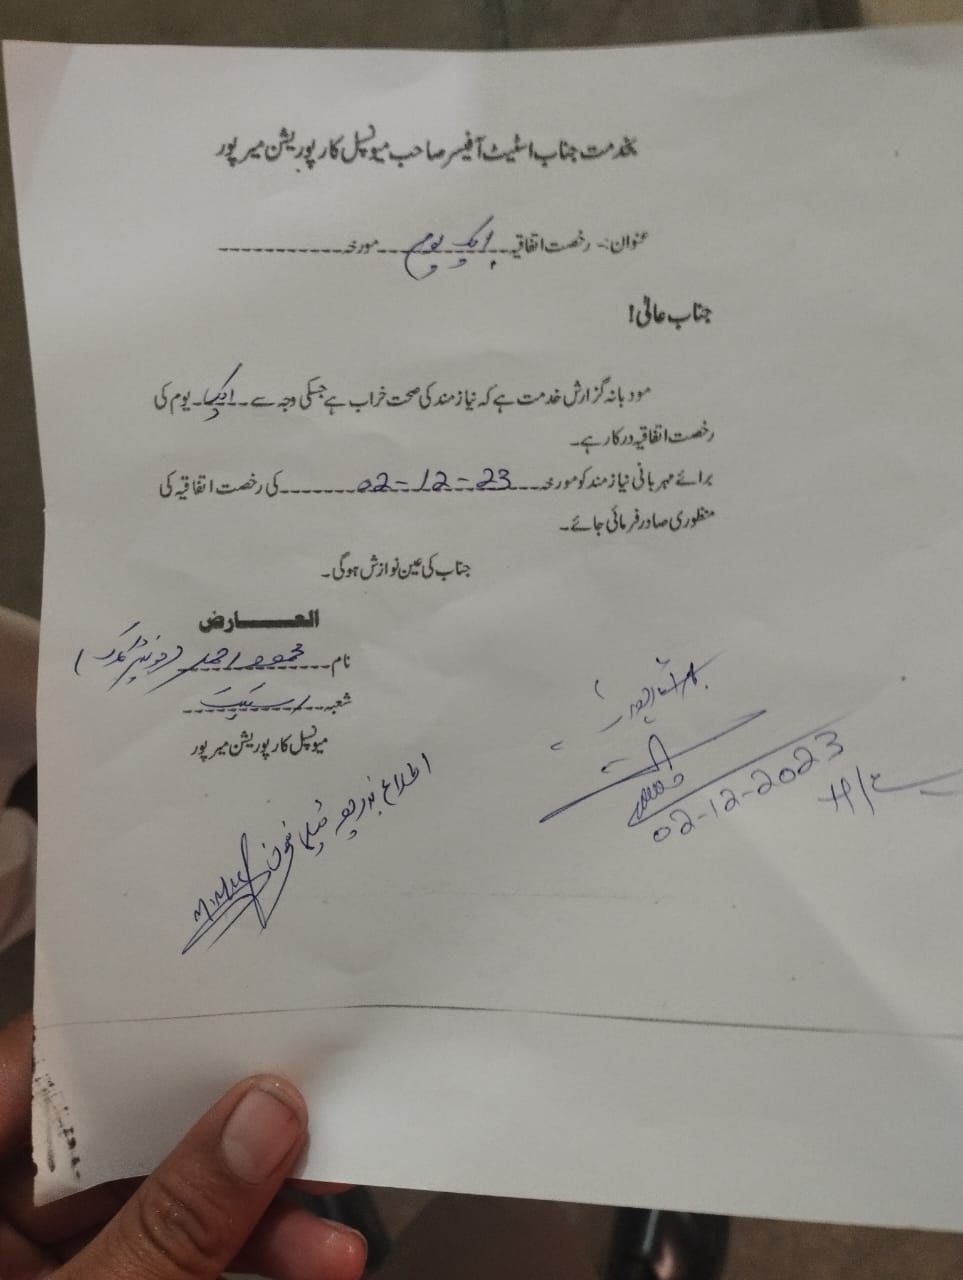 بخدمت جناب اسٹیٹ آفیسر صاحب میونسپل کارپوریشن میرپور
عنوان:۔ رخصت اتفاقیہ ایک یوم مورخہ
جناب عالی!
مودبانہ گزارش خدمت ہے کہ نیازمند کی صحت خراب ہے جسکی وجہ سے ایک یوم کی
رخصت اتفاقیہ درکار ہے۔
برائے مہربانی نیازمند کو مورخہ 02-12-23 کی رخصت اتفاقیہ کی
منظوری صادر فرمائی جائے۔
جناب کی عین نوازش ہوگی۔
العارض
نام محمود احمد (جونیئر کلرک)
شعبہ اسٹیٹ
میونسپل کارپوریشن میرپور
اطلاع بذریعہ ٹیلی فون
02-12-2023